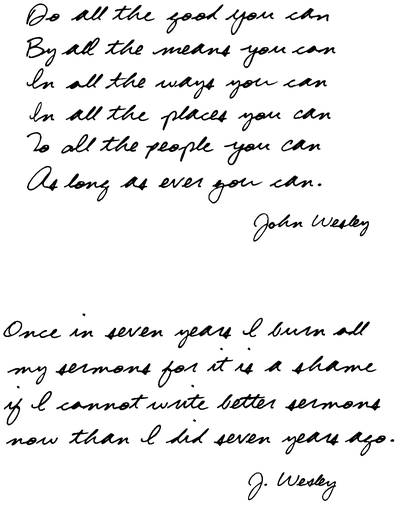 Do all the good you can
By all the means you can
In all the ways you can
In all the places you can
To all the people you can
As long as ever you can.
John Wesley
Once in seven years I burn all
my sermons for it is a shame
if I cannot write better sermons
now than I did seven years ago.
J. Wesley